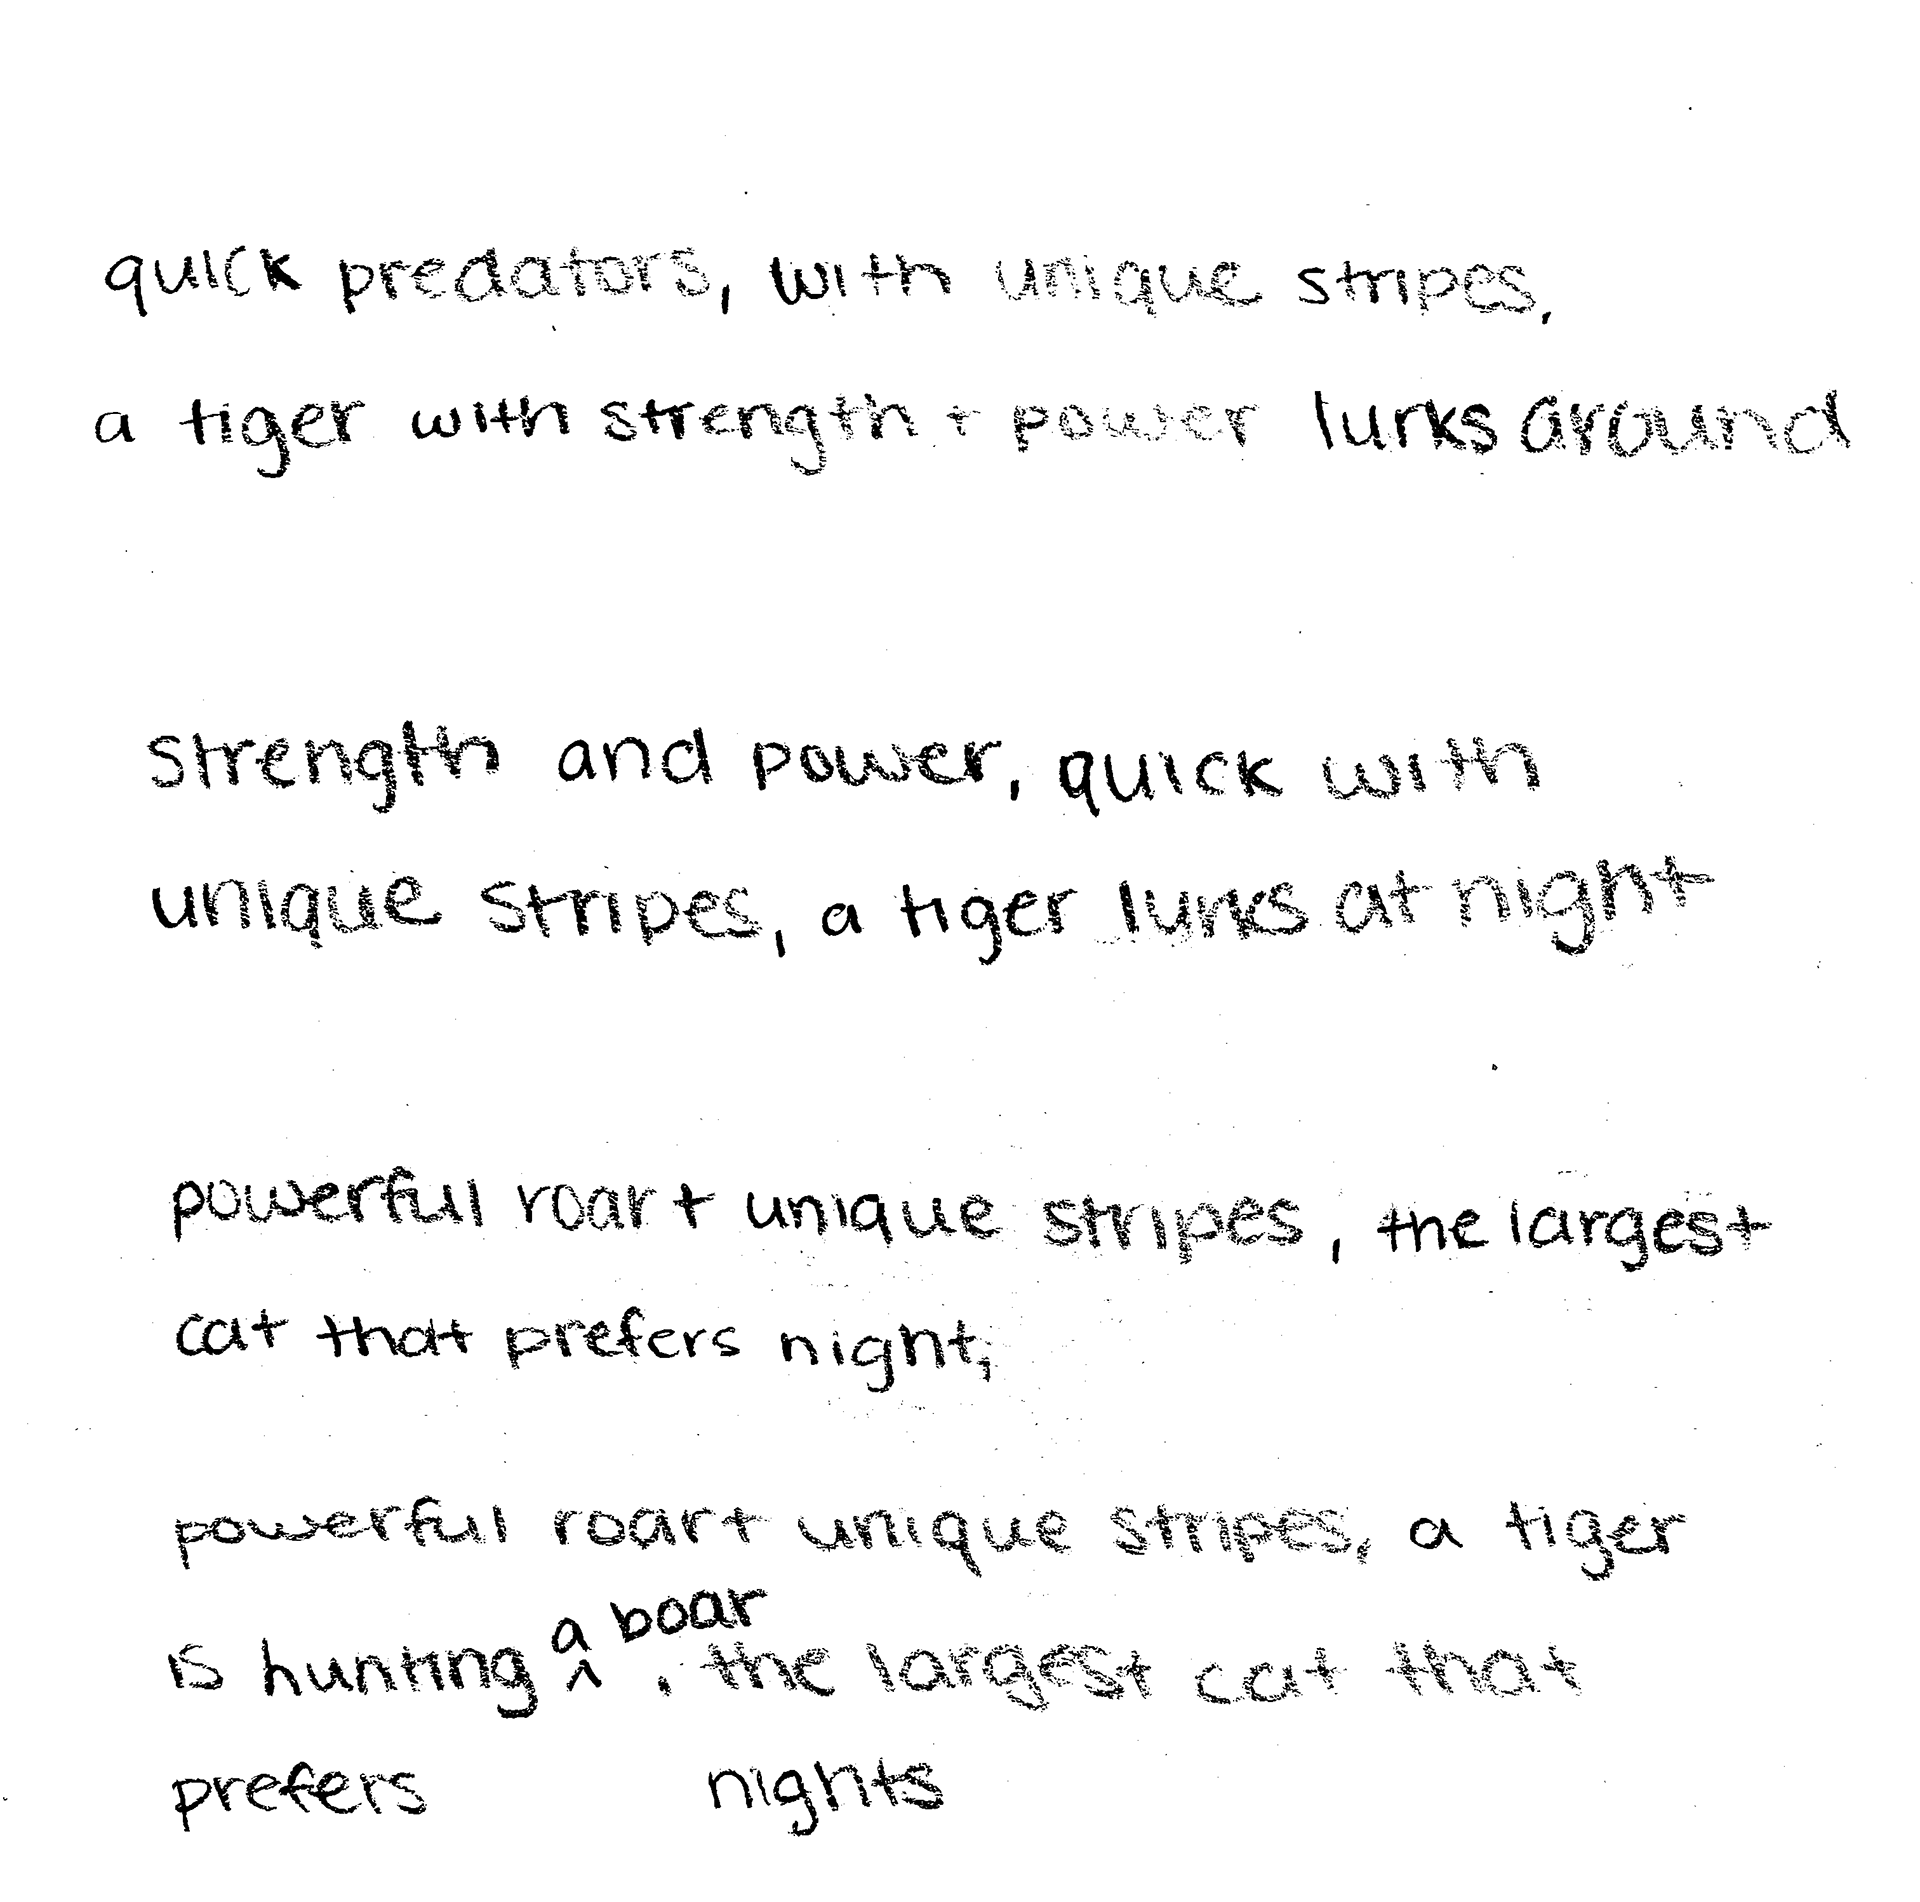 quick predators, with unique stripes,
a tiger with strength + power lurks around
strength and power, quick with
unique stripes, a tiger lurks at night
powerful roar + unique stripes, the largest
cat that prefers night,
powerful roar + unique stripes, a tiger
is hunting a boar, the largest cat that
prefers nights